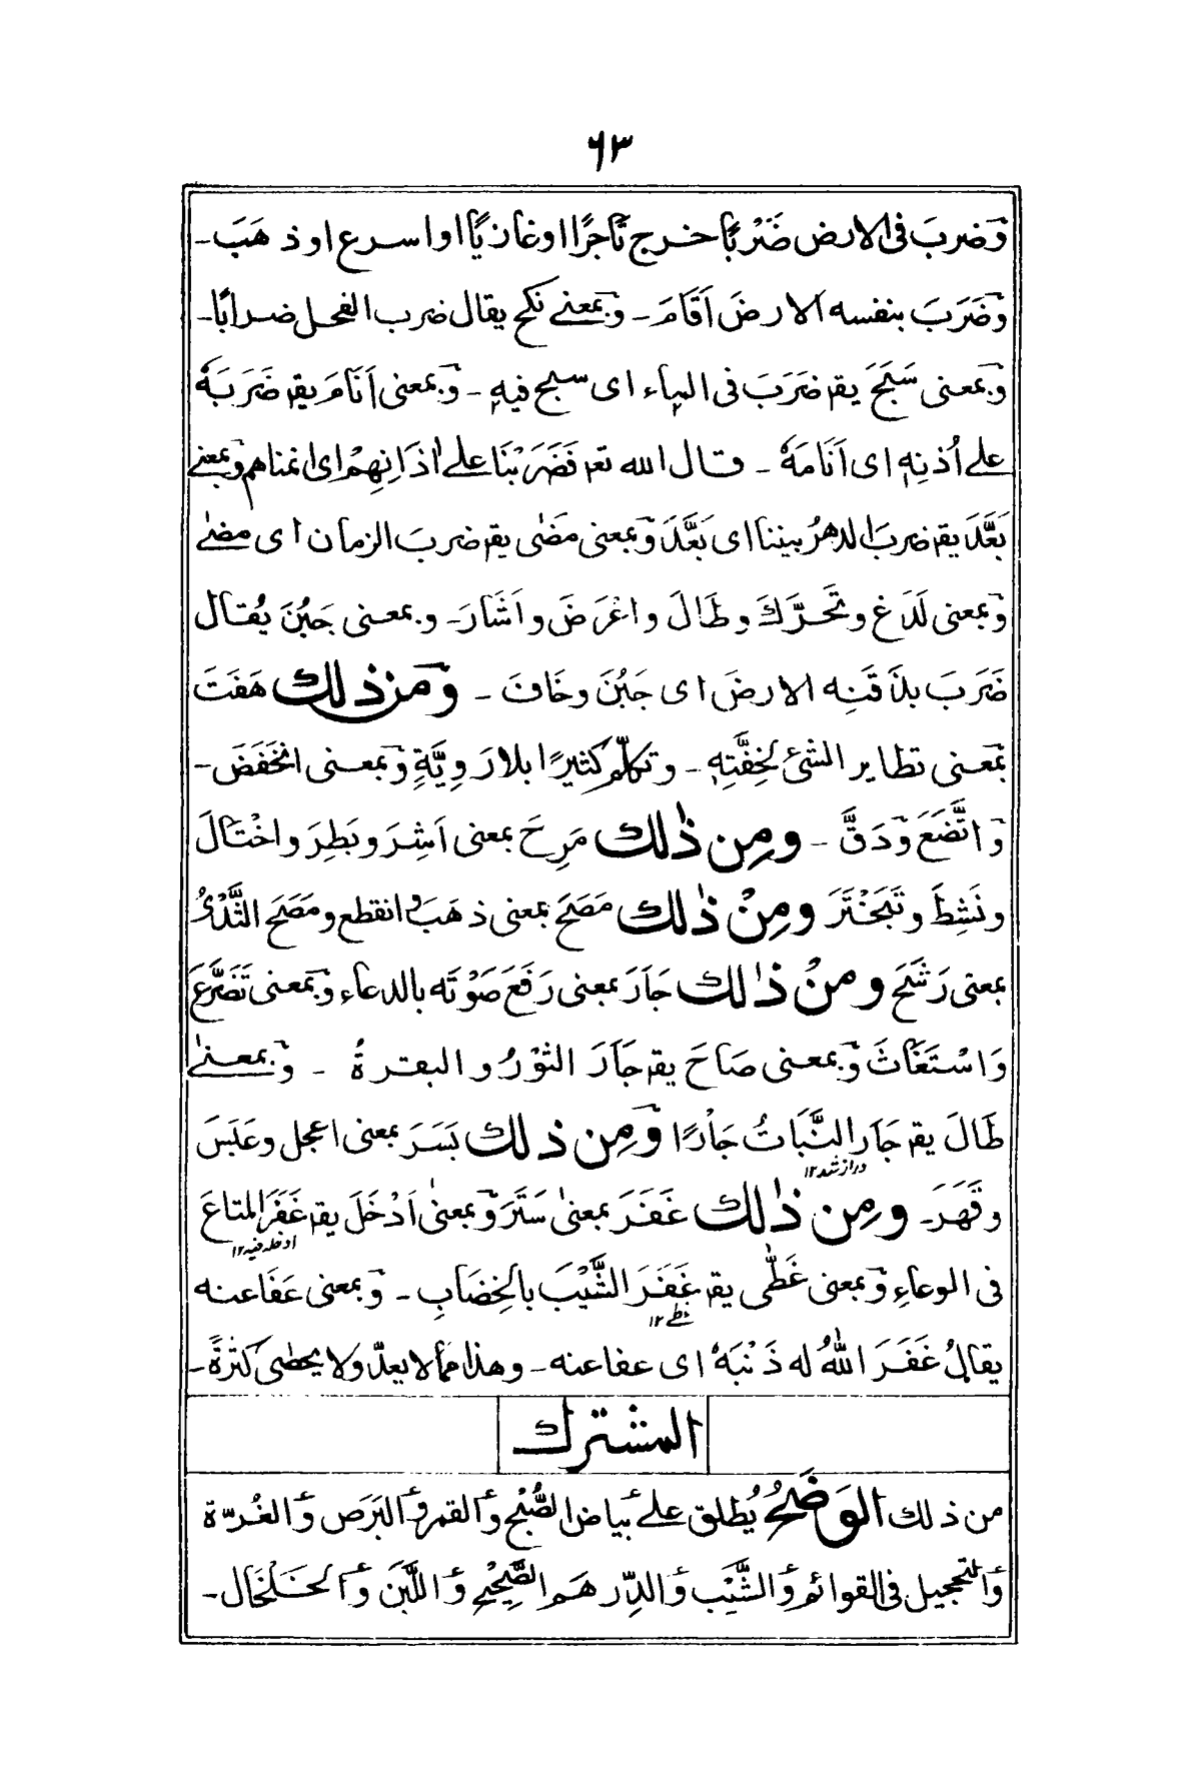 ٦٣
وَضربَ فی الارض ضَرْبًا خرج تَاجرًا اوغازیًا اواسرع اوذهَبَ۔
وَضَرَبَ بنفسه الارضَ اَقَامَ۔ وبمعنے نکح یقال ضرب الفحل ضرابًا۔
وبمعنی سَبَحَ یقہ ضَرَبَ فی الماء ای سبح فیہٖ۔ وبمعنی اَنَامَ یقہ ضَرَبَهٗ
علے اُذنِهٖ ای اَنَامَهٗ ۔ قال الله تعہ فَضَرَبْنَا علے اٰذَانِهِمْ ای انمناهم وبمعنے
بَعَّدَ یقہ ضربَ الدهرُ بیننا ای بَعَّدَ وبمعنی مَضٰی یقہ ضربَ الزمان ای مضےٰ
وبمعنی لَدَغ وتَحَرَّكَ وطَالَ واعْرَضَ واَشَارَ۔ وبمعنی جَبُنَ یُقال
ضَرَبَ بذَقَنِه الارضَ ای جَبُنَ وخَافَ ۔ ومن ذلك هَفَتَ
بمعنی تطایر الشیٔ لِخِفَّتِهٖ ۔ وتکلّم کثیرًا بلارَوِیَّةٍ وبمعنی انْخَفَضَ۔
وَاتَّضَعَ ودَقَّ ۔ ومِن ذٰلك مَرِحَ بمعنی اَشِرَ وبَطِرَ واخْتَالَ
ونَشِطَ وتَبَخْتَرَ ومِنْ ذٰلك مَصَحَ بمعنی ذهَبَ وانقطع ومَصَحَ الثَّدْیُ
بمعنی رَشَحَ ومنْ ذٰلك جَاَرَ بمعنی رَفَعَ صَوْتَه بالدعاء وبمعنی تَضَرَّعَ
وَاسْتَغَاثَ وبمعنی صَاحَ یقہ جَاَرَ الثوْرُ والبقرةُ ۔ وبمعنےٰ
طَالَ یقہ جَاَر النَّبَاتُ جَاْرًا ومِن ذلك بَسَرَ بمعنی اعجل وعَبَسَ
دراز شد ١٢
وقَهَرَ۔ ومِن ذٰلك غَفَرَ بمعنیٰ سَتَرَ وبمعنیٰ اَدْخَلَ یقہ غَفَرَ المتاعَ
ادخله فیه ١٢
فی الوعاءِ وبمعنی غَطّٰی یقہ غَفَرَ الشَّیْبَ بالخِضَابِ ۔ وبمعنی عَفَاعنه
غطے ١٢
یقالُ غَفَرَ اللهُ له ذَنْبَهٗ ای عفاعنه۔ وهذا ممالا یعدّ ولا یحطی کثرةً۔
المشترك
من ذلك الوَضَحُ یُطلق علےٰ بیاض الصُّبْح والقمر والبَرَص والغُرّة
والتحجیل فی القوائم والشَّیْب والدِّرهَم الصَّحِیْحِ واللَّبَن والخَلْخَال۔